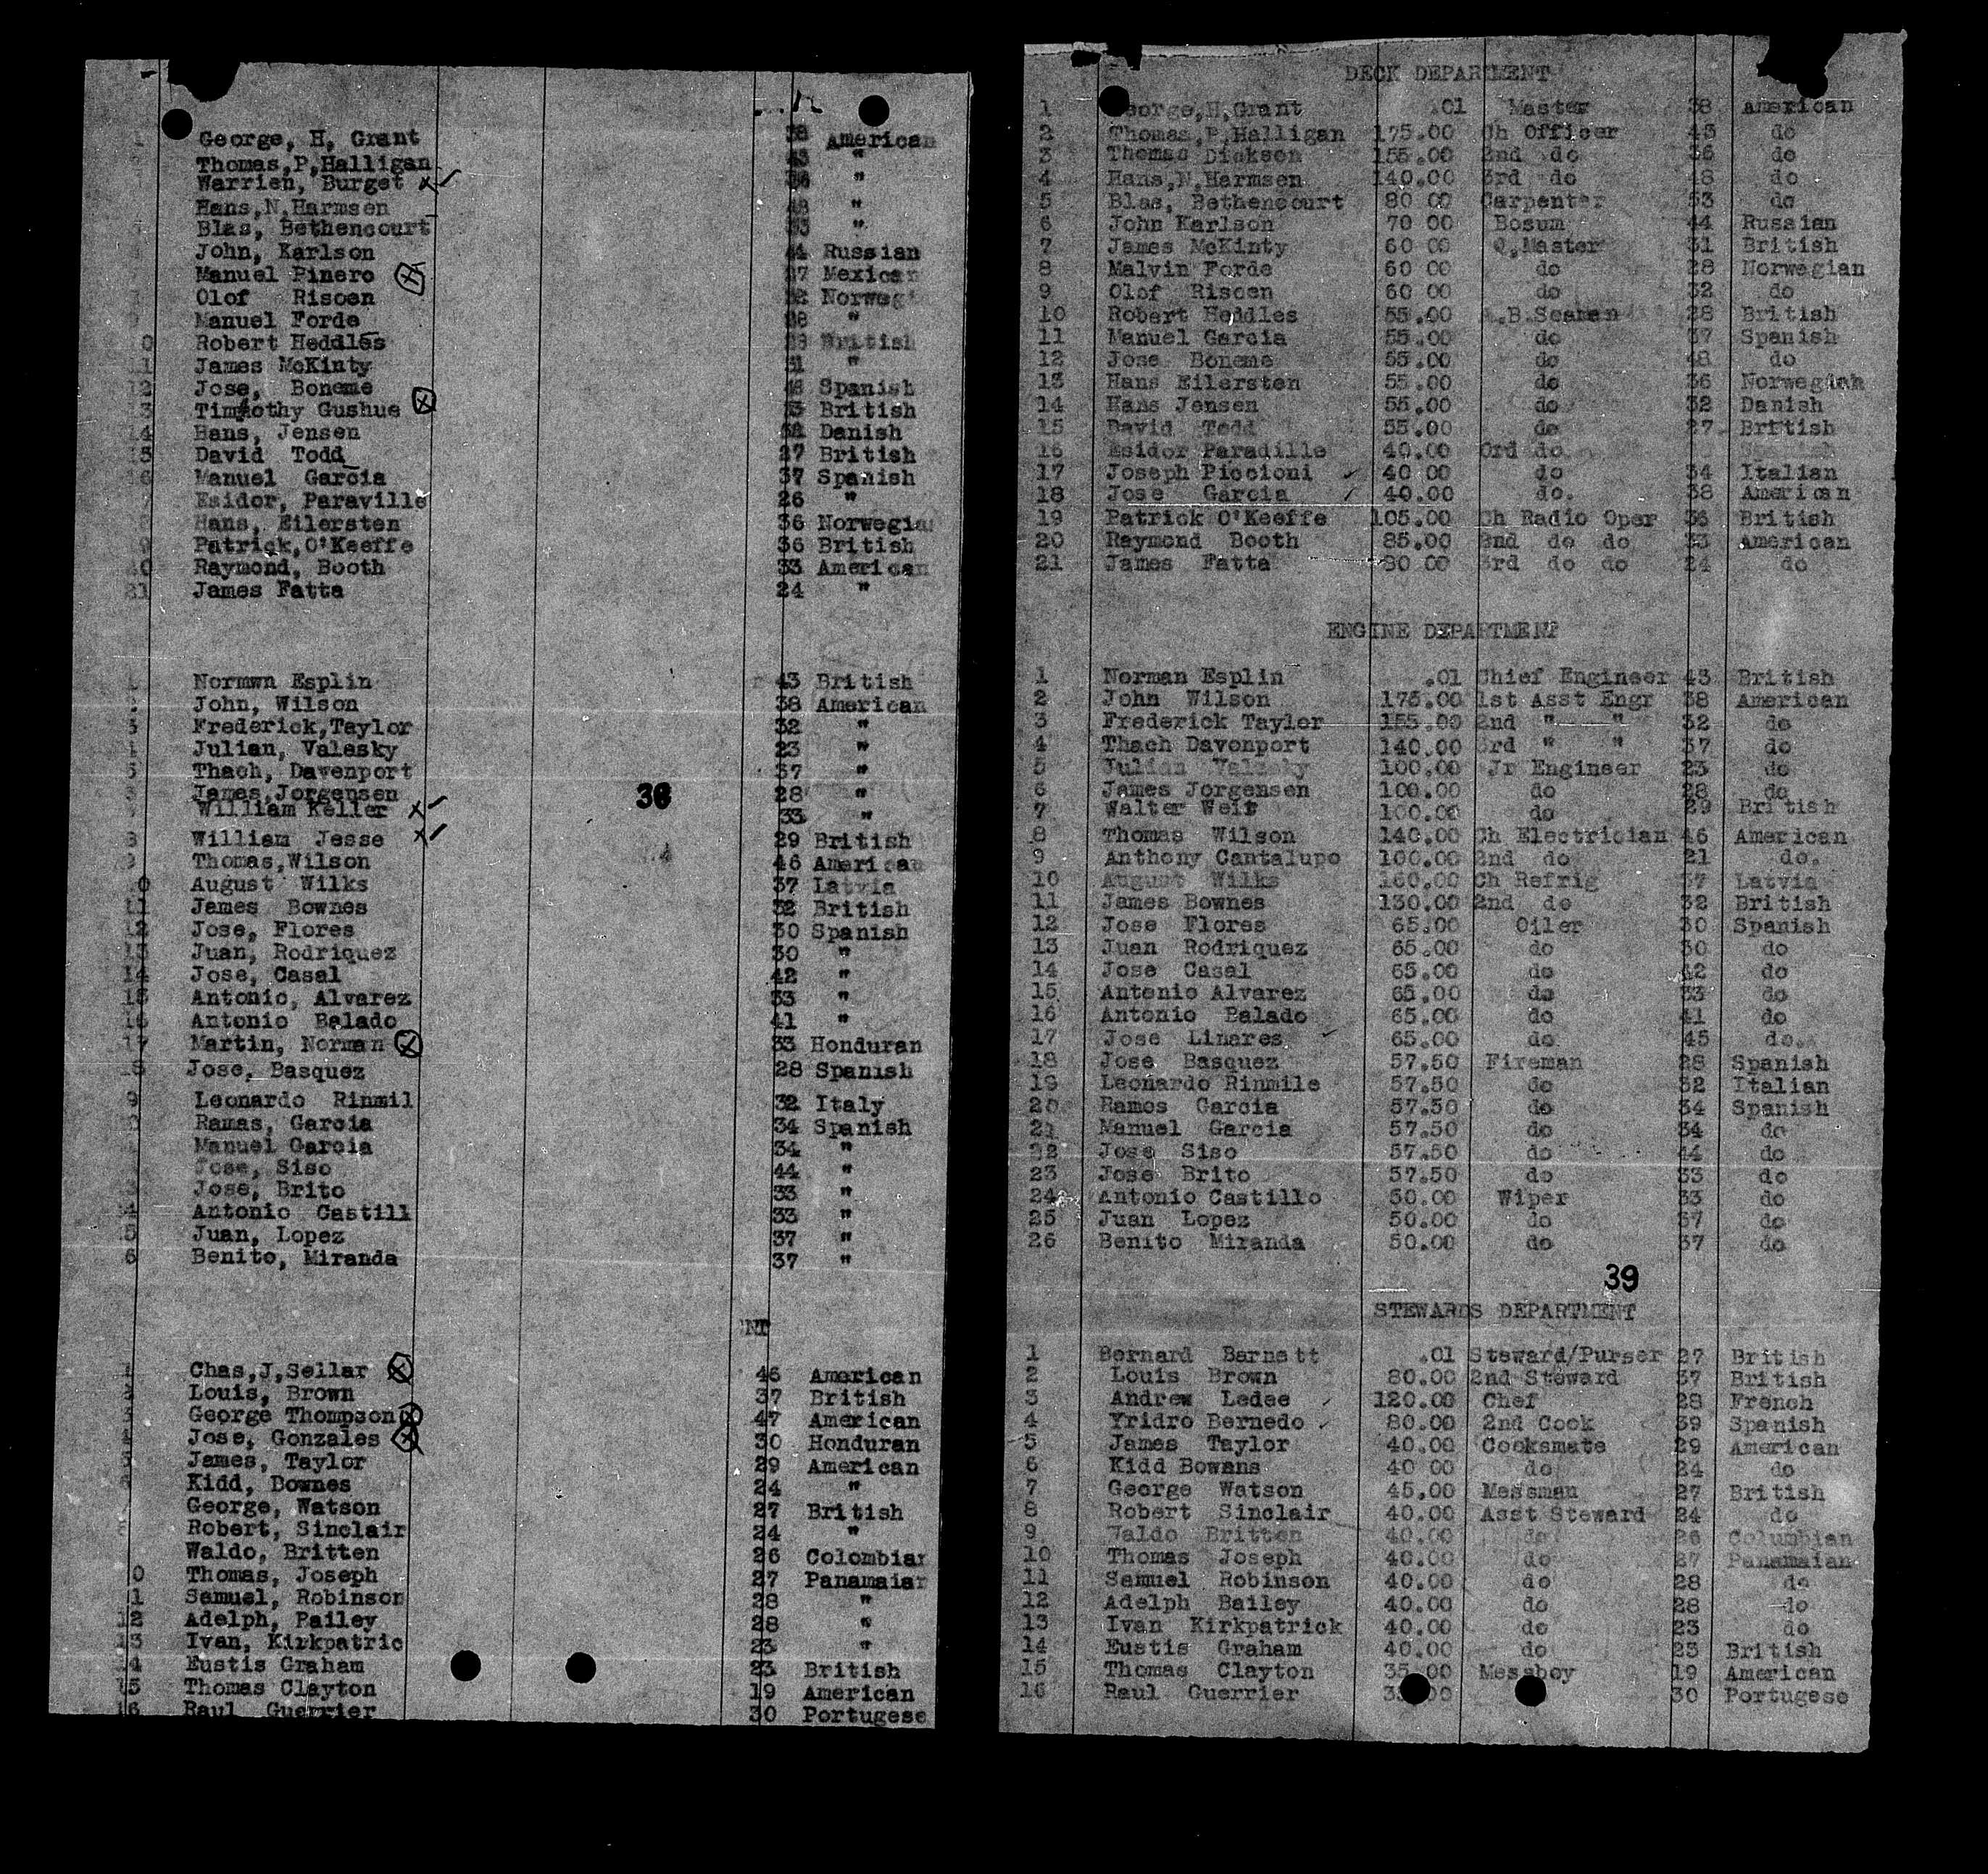 George, H, Grant 38 American
Thomas,P,Halligan 43 "
Warrien, Burget x✓ 36 "
Hans,N,Harmsen 48 "
Blas, Bethencourt 53 "
John, Karlson 44 Russian
Manuel Pinero 27 Mexican
Olof Risoen 32 Norwegi
Manuel Forde 28 "
0 Robert Heddles 28 British
11 James McKinty 31 "
12 Jose, Boneme 48 Spanish
13 Timothy Gushue British
14 Hans, Jensen 32 Danish
15 David Todd 27 British
16 Manuel Garcia 37 Spanish
7 Esidor, Paraville 26 "
Hans, Eilersten 36 Norwegia
9 Patrick,O'Keeffe 36 British
20 Raymond, Booth 33 American
21 James Fatta 24 "
Normwn Esplin 43 British
John, Wilson 38 American
3 Frederick,Taylor 32 "
Julian, Valesky 23 "
5 Thach, Davenport 37 "
James,Jorgensen 28 "
William Keller x✓ 33 "
36
8 William Jesse x✓ 29 British
9 Thomas,Wilson 46 American
0 August Wilks 37 Latvia
11 James Bownes 32 British
12 Jose, Flores 30 Spanish
13 Juan, Rodriquez 30 "
14 Jose, Casal 42 "
15 Antonio, Alvarez 33 "
16 Antonio Balado 41 "
17 Martin, Norman 33 Honduran
8 Jose, Basquez 28 Spanish
9 Leonardo Rinmil 32 Italy
Ramas, Garcia 34 Spanish
Manuel Garcia 34 "
Jose, Siso 44 "
3 Jose, Brito 33 "
4 Antonio Castill 33 "
5 Juan, Lopez 37 "
6 Benito, Miranda 37 "
NT
1 Chas,J,Sellar 46 American
2 Louis, Brown 37 British
3 George Thompson 47 American
4 Jose, Gonzales 30 Honduran
5 James, Taylor 29 American
6 Kidd, Bownes 24 "
George, Watson 27 British
8 Robert, Sinclair 24 "
Waldo, Britten 26 Colombian
0 Thomas, Joseph 27 Panamaian
1 Samuel, Robinson 28 "
12 Adelph, Pailey 28 "
13 Ivan, Kirkpatric 23 "
4 Eustis Graham 23 British
15 Thomas Clayton 19 American
16 Raul Guerrier 30 Portugese
DECK DEPARTMENT
1 George,H,Grant .01 Master 38 American
2 Thomas,P,Halligan 175.00 Ch Officer 43 do
3 Thomas Dickson 155.00 2nd do 36 do
4 Hans,N,Harmsen 140.00 3rd do 48 do
5 Blas, Bethencourt 80 00 Carpenter 53 do
6 John Karlson 70 00 Bosum 44 Russian
7 James McKinty 60 00 Q,Master 31 British
8 Malvin Forde 60 00 do 28 Norwegian
9 Olof Risoen 60 00 do 32 do
10 Robert Heddles 55.00 A.B.Seaman 28 British
11 Manuel Garcia 55.00 do 37 Spanish
12 Jose Boneme 55.00 do 48 do
13 Hans Eilersten 55.00 do 36 Norwegian
14 Hans Jensen 55.00 do 32 Danish
15 David Todd 55.00 do 27 British
16 Esidor Paradille 40.00 Ord do Spanish
17 Joseph Piccioni ✓ 40 00 do 34 Italian
18 Jose Garcia ✓ 40.00 do. 38 American
19 Patrick O'Keeffe 105.00 Ch Radio Oper 36 British
20 Raymond Booth 85.00 2nd do do 33 American
21 James Fatta 80 00 3rd do do 24 do
ENGINE DEPARTMENT
1 Norman Esplin .01 Chief Engineer 43 British
2 John Wilson 175.00 1st Asst Engr 38 American
3 Frederick Taylor 155.00 2nd " " 32 do
4 Thach Davenport 140.00 3rd " " 37 do
5 Julian Valesky 100.00 Jr Engineer 23 do
6 James Jorgensen 100.00 do 28 do
7 Walter Weir 100.00 do 29 British
8 Thomas Wilson 140.00 Ch Electrician 46 American
9 Anthony Cantalupo 100.00 2nd do 21 do.
10 August Wilks 160.00 Ch Refrig 37 Latvia
11 James Bownes 130.00 2nd do 32 British
12 Jose Flores 65.00 Oiler 30 Spanish
13 Juan Rodriquez 65.00 do 30 do
14 Jose Casal 65.00 do 42 do
15 Antonio Alvarez 65.00 do 33 do
16 Antonio Balado 65.00 do 41 do
17 Jose Linares ✓ 65.00 do 45 do.
18 Jose Basquez 57.50 Fireman 28 Spanish
19 Leonardo Rinmile 57.50 do 32 Italian
20 Ramos Garcia 57.50 do 34 Spanish
21 Manuel Garcia 57.50 do 34 do
22 Jose Siso 57.50 do 44 do
23 Jose Brito 57.50 do 33 do
24 Antonio Castillo 50.00 Wiper 33 do
25 Juan Lopez 50.00 do 37 do
26 Benito Miranda 50.00 do 37 do
39
STEWARDS DEPARTMENT
1 Bernard Barnett .01 Steward/Purser 27 British
2 Louis Brown 80.00 2nd Steward 37 British
3 Andrew Ledee ✓ 120.00 Chef 28 French
4 Yridro Bernedo ✓ 80.00 2nd Cook 39 Spanish
5 James Taylor 40.00 Cooksmate 29 American
6 Kidd Bowans 40 00 do 24 do
7 George Watson 45.00 Messman 27 British
8 Robert Sinclair 40.00 Asst Steward 24 do
9 Waldo Britten 40.00 do 26 Columbian
10 Thomas Joseph 40.00 do 27 Panamaian
11 Samuel Robinson 40.00 do 28 do
12 Adelph Bailey 40.00 do 28 do
13 Ivan Kirkpatrick 40.00 do 23 do
14 Eustis Graham 40.00 do 23 British
15 Thomas Clayton 35.00 Messboy 19 American
16 Raul Guerrier 00 30 Portugese